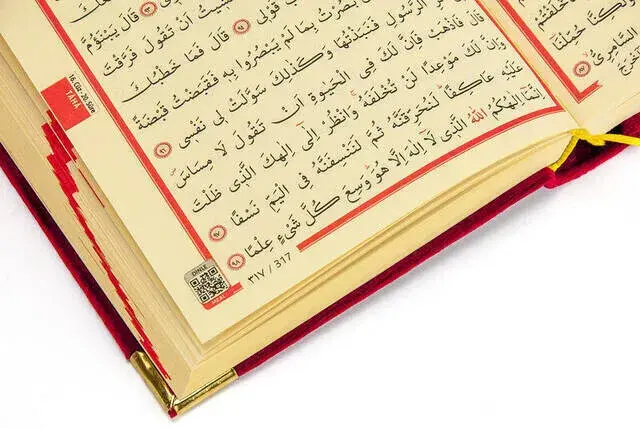 السَّامِرِيُّ ٨٧
٩٣ قَالَ يَبْنَؤُمَّ
اَنْ تَقُولَ فَرَّقْتَ
قَوْلِي ٩٤ قَالَ فَمَا خَطْبُكَ
بَصُرْتُ بِمَا لَمْ يَبْصُرُوا بِهِ فَقَبَضْتُ قَبْضَةً
الرَّسُولِ فَنَبَذْتُهَا وَكَذٰلِكَ سَوَّلَتْ لِي نَفْسِي ٩٦
قَالَ فَاذْهَبْ فَاِنَّ لَكَ فِي الْحَيٰوةِ اَنْ تَقُولَ لَا مِسَاسَ
وَاِنَّ لَكَ مَوْعِدًا لَنْ تُخْلَفَهُ وَانْظُرْ اِلٰٓى اِلٰهِكَ الَّذِي ظَلْتَ
عَلَيْهِ عَاكِفًا لَنُحَرِّقَنَّهُ ثُمَّ لَنَنْسِفَنَّهُ فِي الْيَمِّ نَسْفًا ٩٧
اِنَّمَٓا اِلٰهُكُمُ اللّٰهُ الَّذِي لَٓا اِلٰهَ اِلَّا هُوَ وَسِعَ كُلَّ شَيْءٍ عِلْمًا ٩٨
16.Cüz - 20.Sûre
TÂHÂ
DİNLE
٣١٧ / 317